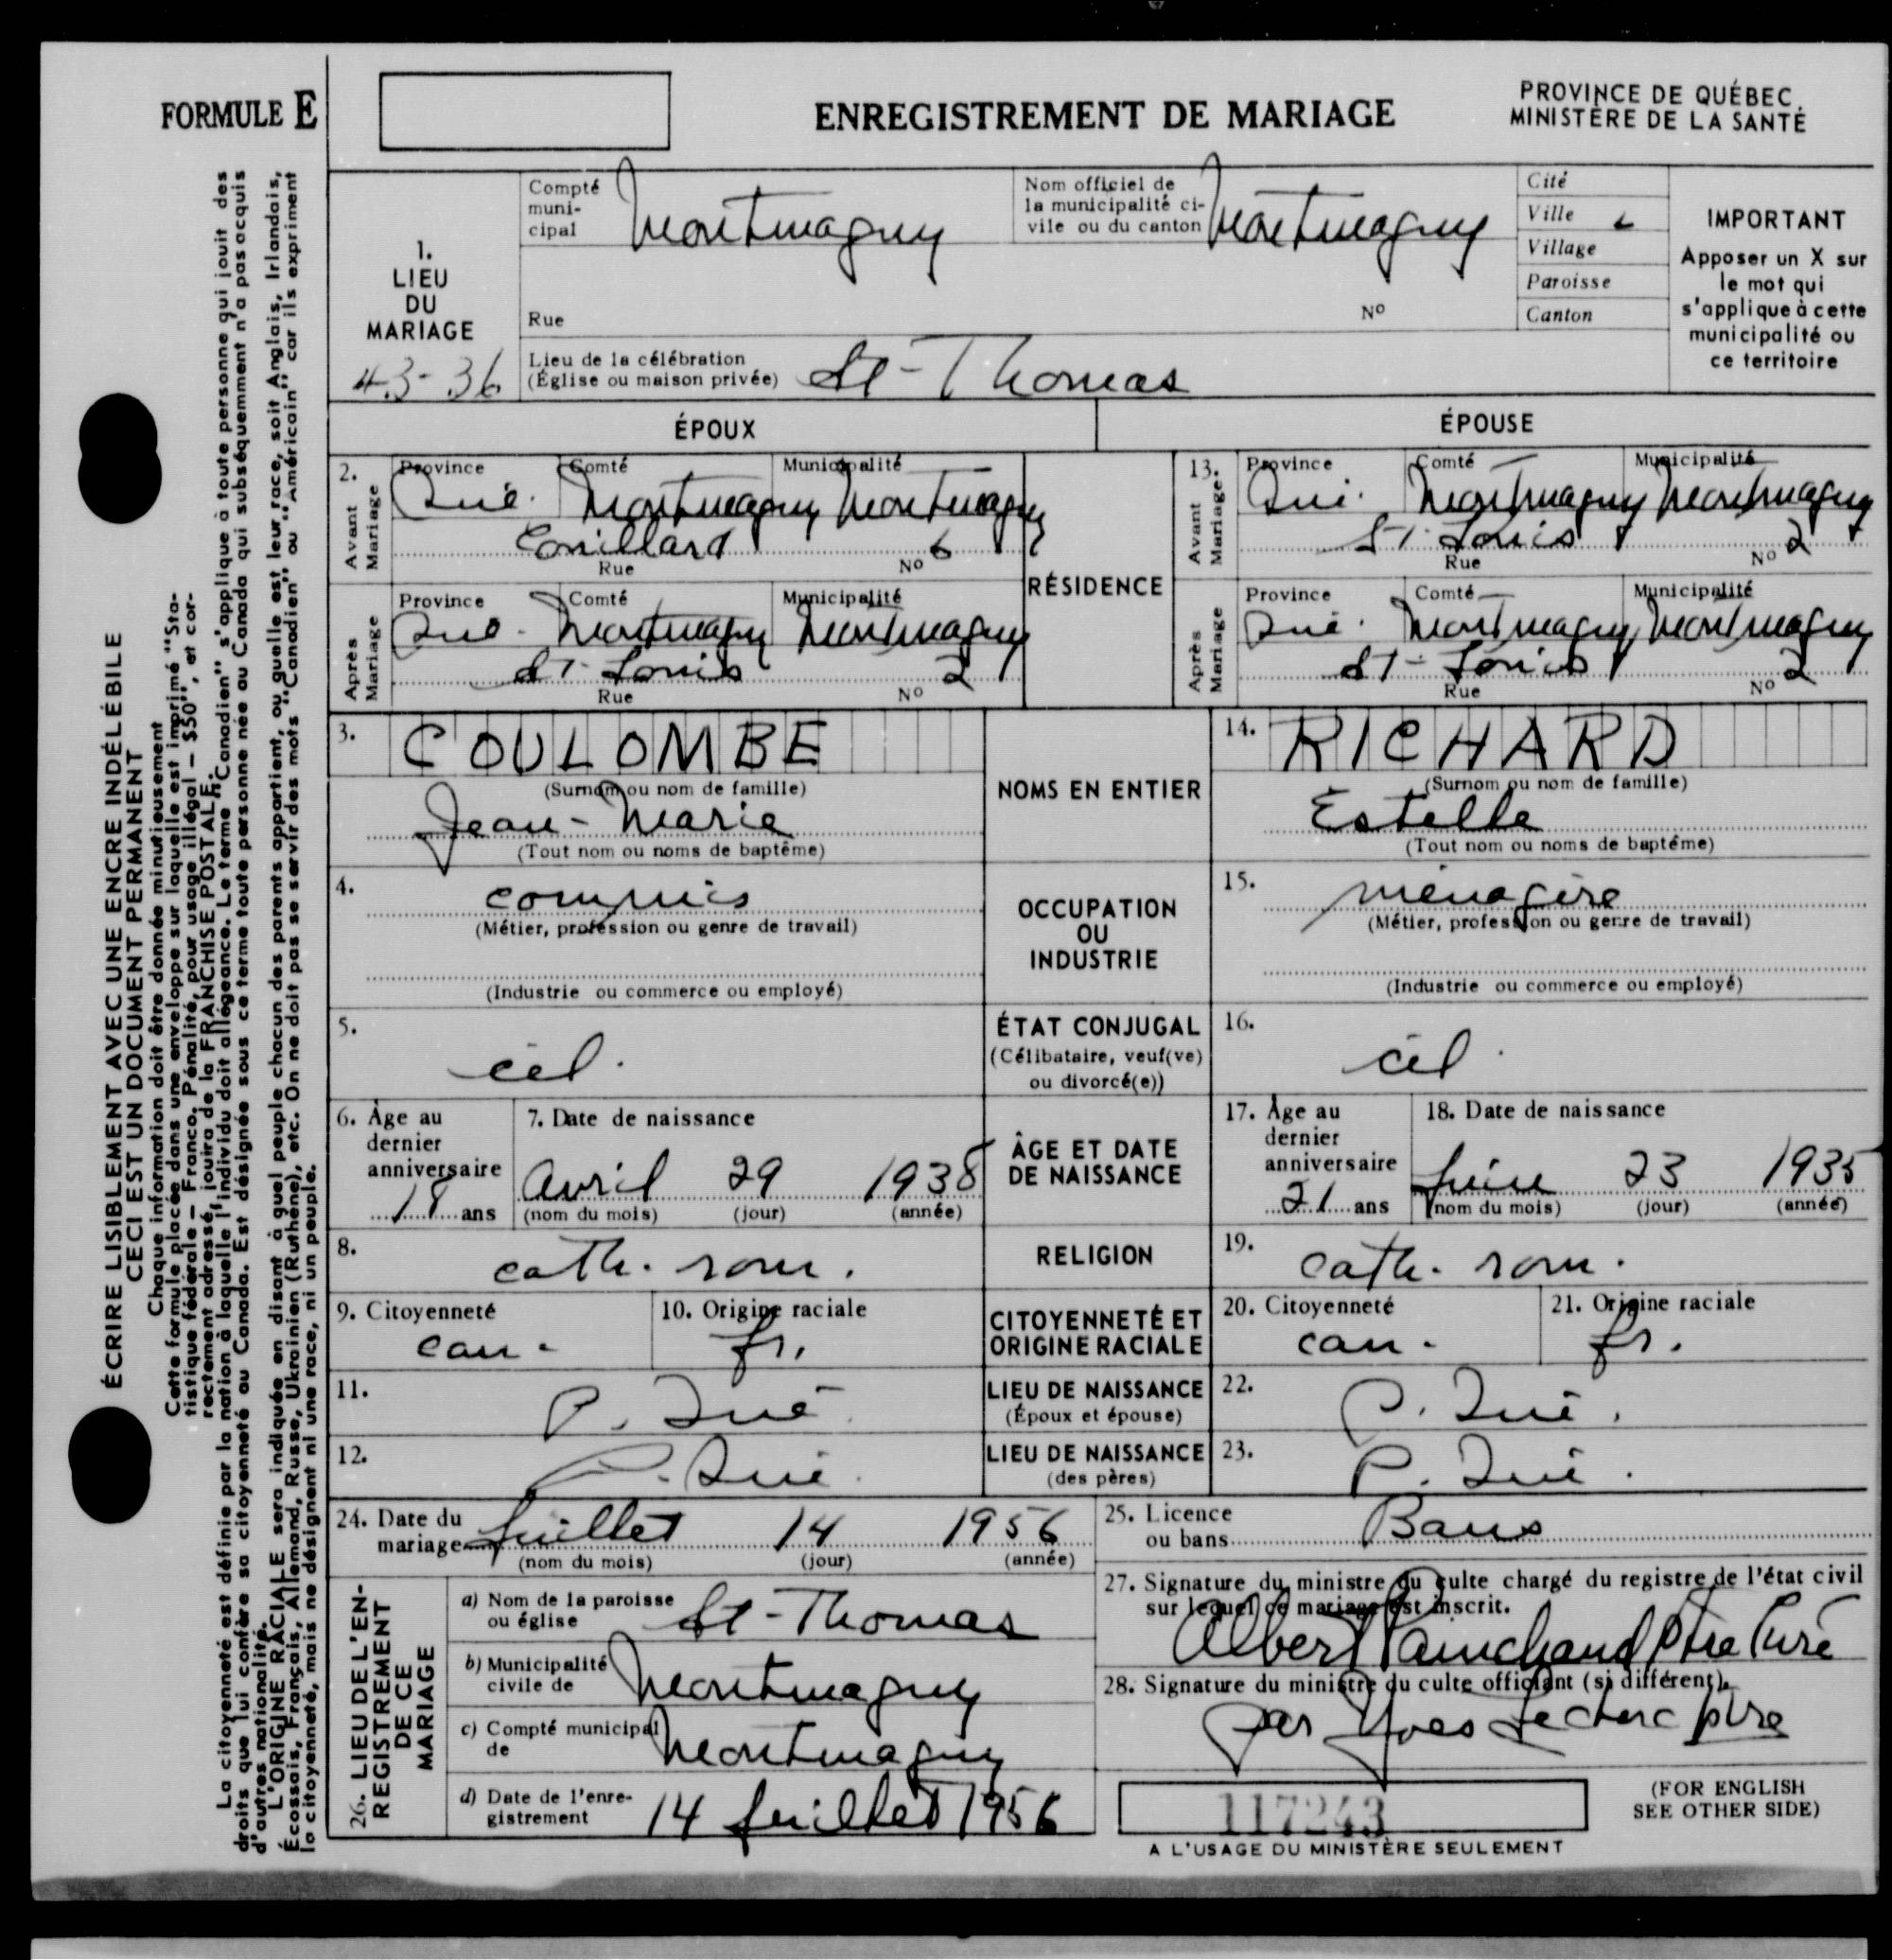 FORMULE E
ENREGISTREMENT DE MARIAGE
PROVINCE DE QUÉBEC
MINISTÈRE DE LA SANTÉ
ÉCRIRE LISIBLEMENT AVEC UNE ENCRE INDÉLÉBILE
CECI EST UN DOCUMENT PERMANENT
Chaque information doit être donnée minutieusement
Cette formule placée dans une enveloppe sur laquelle est imprimé "Sta-
tistique fédérale – Franco. Pénalité, pour usage illégal – $50", et cor-
rectement adressé, jouira de la FRANCHISE POSTALE.
La citoyenneté est définie par la nation à laquelle l'individu doit allégeance. Le terme "Canadien" s'applique à toute personne qui jouit des
droits que lui confère sa citoyenneté au Canada. Est désignée sous ce terme toute personne née au Canada qui subséquemment n'a pas acquis
d'autres nationalité.
L'ORIGINE RACIALE sera indiquée en disant à quel peuple chacun des parents appartient, ou quelle est leur race, soit Anglais, Irlandais,
Écossais, Français, Allemand, Russe, Ukrainien (Ruthène), etc. On ne doit pas se servir des mots "Canadien" ou "Américain" car ils expriment
la citoyenneté, mais ne désignent ni une race, ni un peuple.
1.
LIEU
DU
MARIAGE
43-36
Compté
muni-
cipal
Montmagny
Nom officiel de
la municipalité ci-
vile ou du canton
Montmagny
Cité
Ville
Village
Paroisse
Canton
IMPORTANT
Apposer un X sur
le mot qui
s'applique à cette
municipalité ou
ce territoire
Rue
No
Lieu de la célébration
(Église ou maison privée)
St-Thomas
ÉPOUX
ÉPOUSE
2.
Avant
Mariage
Province Comté Municipalité
Qué. Montmagny Montmagny
Couillard 6
Rue No
Après
Mariage
Province Comté Municipalité
Qué. Montmagny Montmagny
St-Louis 2
Rue No
RÉSIDENCE
13.
Avant
Mariage
Province Comté Municipalité
Qué. Montmagny Montmagny
St-Louis 2
Rue No
Après
Mariage
Province Comté Municipalité
Qué. Montmagny Montmagny
St-Louis 2
Rue No
3. COULOMBE
(Surnom ou nom de famille)
Jean-Marie
(Tout nom ou noms de baptême)
NOMS EN ENTIER
14. RICHARD
(Surnom ou nom de famille)
Estelle
(Tout nom ou noms de baptême)
4. commis
(Métier, profession ou genre de travail)
(Industrie ou commerce ou employé)
OCCUPATION
OU
INDUSTRIE
15. ménagère
(Métier, profession ou genre de travail)
(Industrie ou commerce ou employé)
5. cél.
ÉTAT CONJUGAL
(Célibataire, veuf(ve)
ou divorcé(e))
16. cél.
6. Âge au
dernier
anniversaire
18 ans
7. Date de naissance
Avril 29 1938
(nom du mois) (jour) (année)
ÂGE ET DATE
DE NAISSANCE
17. Âge au
dernier
anniversaire
21 ans
18. Date de naissance
Juin 23 1935
(nom du mois) (jour) (année)
8. cath. rom.
RELIGION
19. cath. rom.
9. Citoyenneté
can.
10. Origine raciale
fr.
CITOYENNETÉ ET
ORIGINE RACIALE
20. Citoyenneté
can.
21. Origine raciale
fr.
11. P. Qué.
LIEU DE NAISSANCE
(Époux et épouse)
22. P. Qué.
12. P. Qué.
LIEU DE NAISSANCE
(des pères)
23. P. Qué.
24. Date du
mariage
Juillet 14 1956
(nom du mois) (jour) (année)
25. Licence
ou bans
Bans
26. LIEU DE L'EN-
REGISTREMENT
DE CE
MARIAGE
a) Nom de la paroisse
ou église
St-Thomas
b) Municipalité
civile de
Montmagny
c) Compté municipal
de
Montmagny
d) Date de l'enre-
gistrement
14 Juillet 1956
27. Signature du ministre du culte chargé du registre de l'état civil
sur lequel ce mariage est inscrit.
Albert Painchaud ptre Curé
28. Signature du ministre du culte officiant (si différent).
par Yves Leclerc ptre
117243
A L'USAGE DU MINISTÈRE SEULEMENT
(FOR ENGLISH
SEE OTHER SIDE)